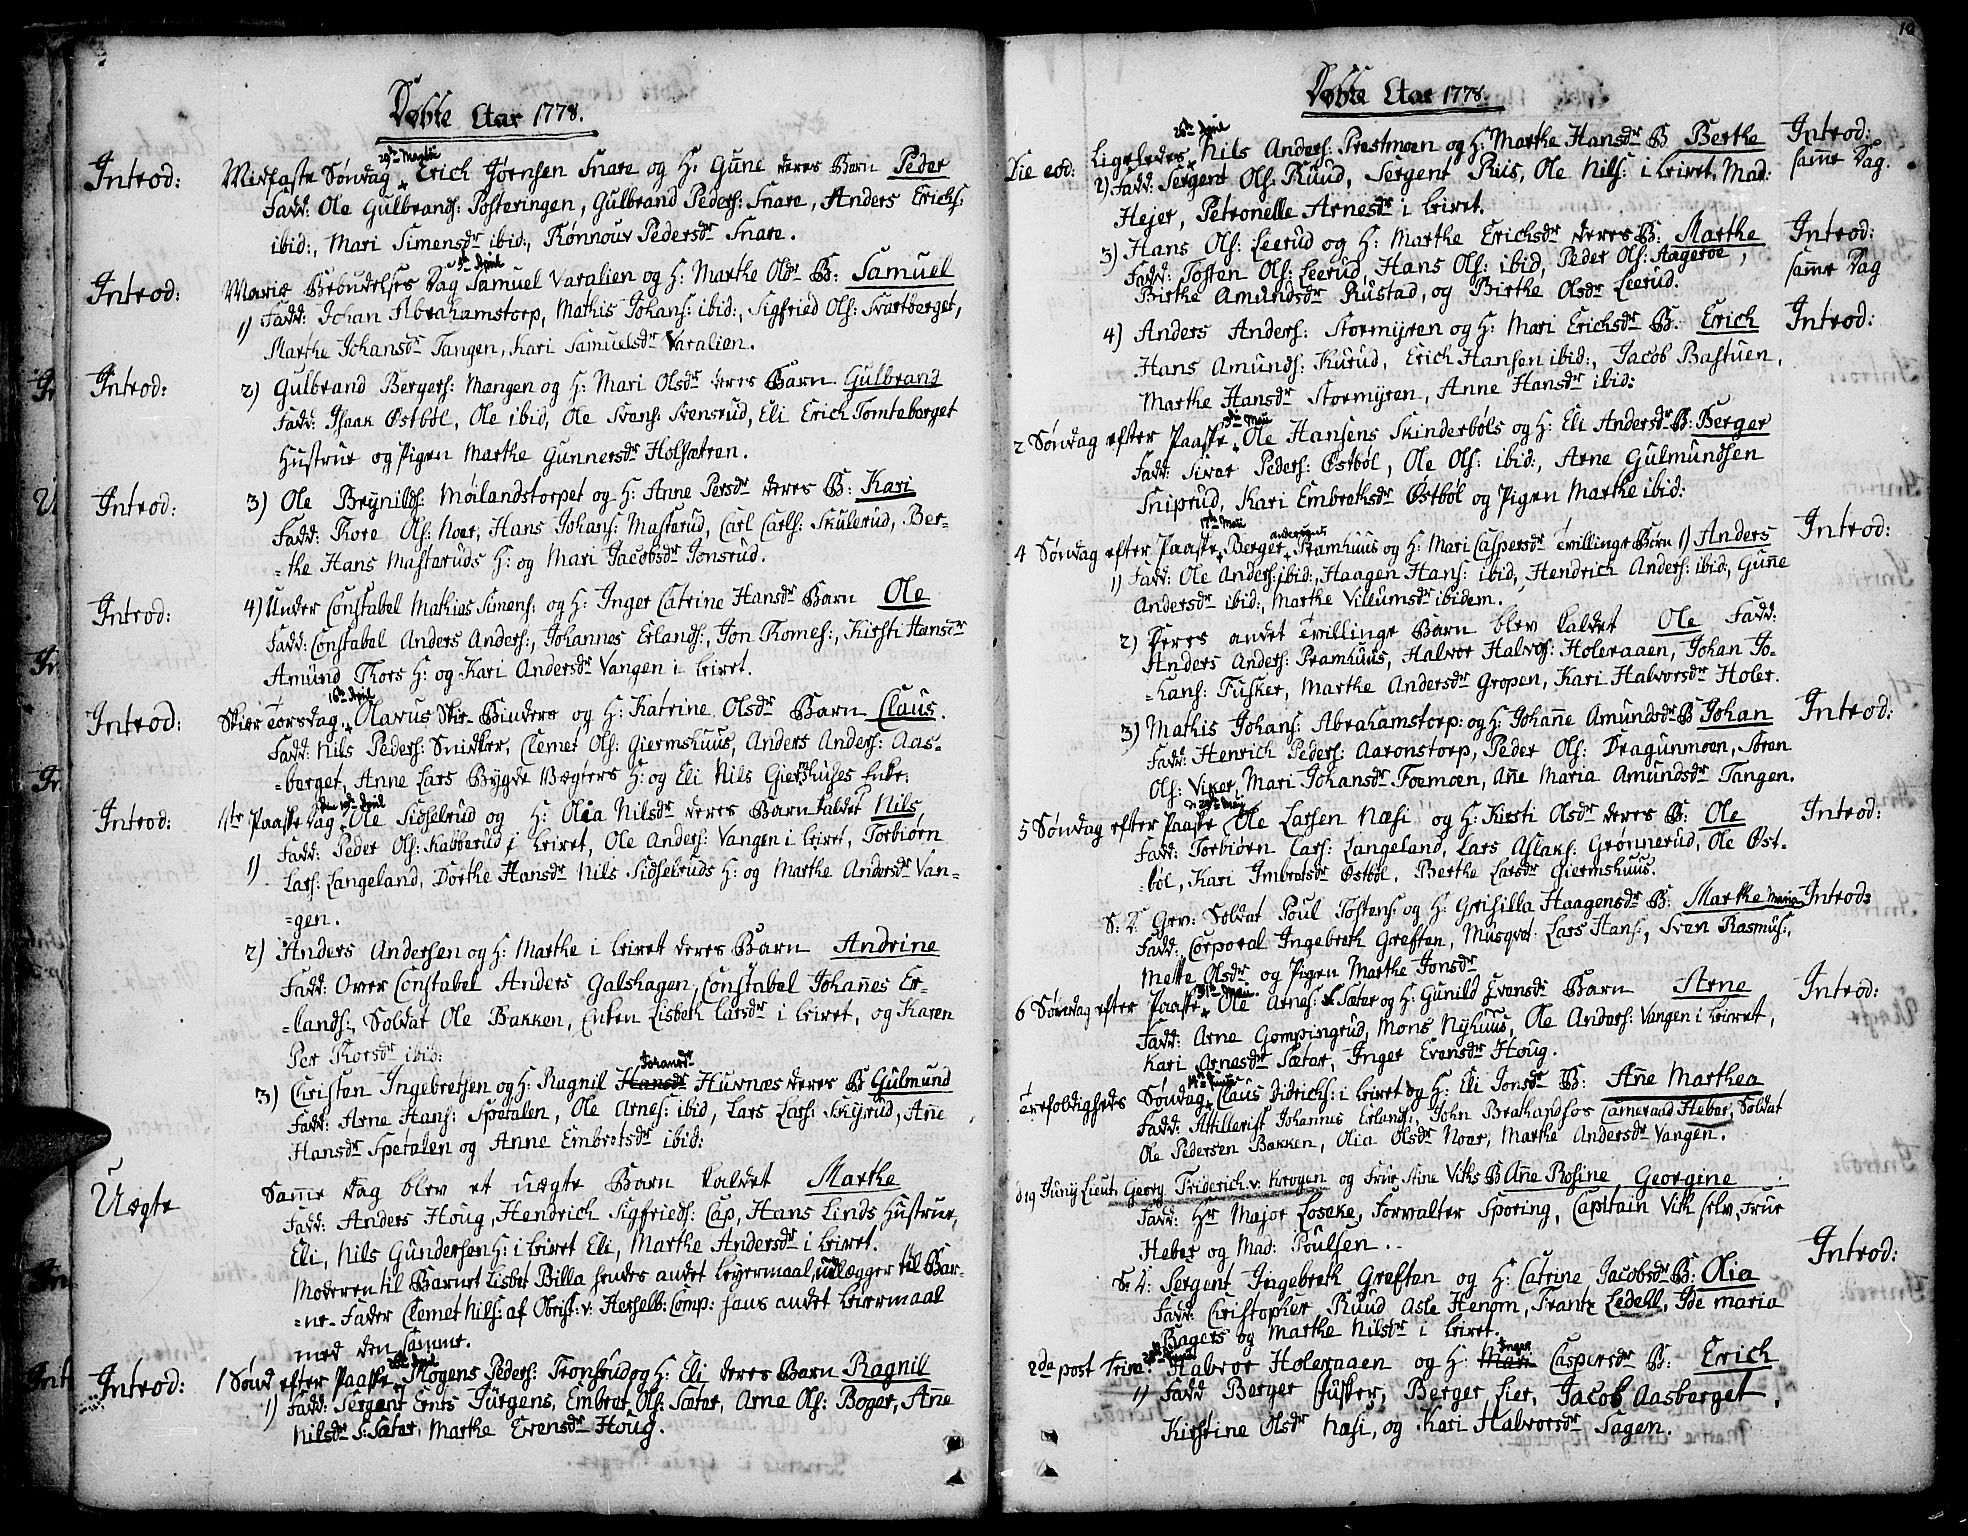 Døbte Aar 1778.
29de Martii
Introd: Midfaste Søndag Erich Jørensen Snare og H: Gune deres Barn Peder
Fadd: Ole Gulbrands: Posteringen, Gulbrand Peders: Snare, Anders Erichs:
ibid:, Mari Simensdr ibid:, Rønnouv Pedersdr Snare.
April
Introd: Mariæ Bebudelses Dag Samuel Varalien og H: Marthe Olsdr B: Samuel
1) Fadd: Johan Abrahamstorp, Mathis Johans: ibid:, Sigfried Ols: Svartberget,
Marthe Johansdr Tangen, Kari Samuelsdr Varalien.
Introd: 2) Gulbrand Bergers: Mangen og H: Mari Olsdr deres Barn Gulbrand
Fadd: Isaak Østbøl, Ole ibid, Ole Svens: Svensrud, Eli Erich Tomteberget
Hustrue og Pigen Marthe Gunnersdr Holsætren.
Introd: 3) Ole Brynilds: Møilandstorpet og H: Anne Persdr deres B: Kari
Fadd: Tore Ols: Noer, Hans Johans: Mastarud, Carl Carls: Skulerud, Ber-
-the Hans Mastaruds H: og Mari Jacobsdr Jonsrud.
Introd: 4) Under Constabel Mathias Simens: og H: Inger Catrine Hansdr Barn Ole
Fadd: Constabel Anders Anders:, Johannes Erlands:, Jon Thomes:, Kirsti Hansdr
Amund Thors H: og Kari Andersdr Vangen i Leiret.
16de April
Introd: Skiær Torsdag Olavus Skie-Binders og H: Katrine Olsdr Barn Claus.
Fadd: Nils Peders: Snidker, Clemet Ols: Giermshuus, Anders Anders: Aas-
-berget, Anne Lars Bygde Vægters H: og Eli Nils Giershuses Enke.
den 19de April
Introd: 1ste Paaske Dag Ole Sidselrud og H: Olia Nilsdr deres Barn kaldet Nils
1) Fadd: Peder Ols: Kabberud i Leiret, Ole Anders: Vangen i Leiret, Torbiørn
Lars: Langeland, Dorthe Hansdr Nils Sidselruds H: og Marthe Andersdr Van-
-gen.
2) Anders Andersen og H: Marthe i Leiret deres Barn Andrine
Fadd: Over Constabel Anders Galshagen, Constabel Johanes Er-
-lands:, Soldat Ole Bakken, Enken Lisbeth Larsdr i Leiret, og Karen
Per Thorsdr ibid:
3) Christen Ingebretsen og H: Ragnil Hansdr Huvnæs deres B Gulmund
Fadd: Arne Hans: Speralen, Ole Arnes: ibid, Lars Lars: Skyrud, Ane
Hansdr Speralen og Anne Embretsdr ibid:
Uægte Same Dag blev et uægte Barn kaldet Marthe
Fadd: Anders Houg, Hendrich Sigfrieds: Cap, Hans Linds Hustrue,
Eli, Nils Gundersen H: i Leiret Eli, Marthe Andersdr i Leiret.
Moderen til Barnet Lisbet Billa hendes andet Leyermaal, udlægger til Bar-
-ne-Fader Clemet Nils: af Obrist: v: Hesselb: Comp: hans andet Leiermaal
med den samme.
26de April
Introd: 1 Sønd efter Paaske Mogens Peders: Tronsrud og H: Eli deres Barn Ragnil
1) Fadd: Sergent Ernts Jürgens, Embret Ols: Sæter, Arne Ols: Boger, Ane
Nilsdr S: Sæter, Marthe Evensdr Houg.
10
Døbte Aar 1778.
26de April
Die eod: Ligeledes Nils Anders: Prestmoen og H: Marthe Hansdr B Berthe Introd:
2) Fadd: Sergent Ols: Ruud, Sergent Riis, Ole Nils: i Leiret, Mad: same Dag.
Hejer, Petronelle Arnesdr i Leiret.
3) Hans Ols: Leerud og H: Marthe Erichsdr deres B: Marthe Introd:
Fadd: Tosten Ols: Leerud, Hans Ols: ibid, Peder Ols: Aageroe, same Dag
Birthe Amundsdr Rustad, og Birthe Olsdr Leerud.
4) Anders Anders: Stormyren og H: Mari Erichsdr B. Erich Introd:
Hans Amunds: Kurud, Erich Hansen ibid:, Jacob Bastuen,
Marthe Hansdr Stormyren, Anne Hansdr ibid:
Maii
2 Søndag efter Paaske Ole Hansens Skinderbøls og H: Eli Andersdr B: Berger
Fadd: Sivar Peders: Østbøl, Ole Ols: ibid:, Arne Gulmundsen
Sniprud, Kari Embrethsdr Østbøl og Pigen Marthe ibid:
17de Maii
4 Søndag efter Paaske Berger Pramhuus og H: Mari Caspersdr Tvillinge Børn 1) Anders Introd:
1) Fadd: Ole Anders: ibid:, Haagen Hans: ibid, Hendrich Anders: ibid:, Gune
Andersdr ibid:, Marthe Villumsdr ibidem.
2) Deres andet Tvillinge Barn blev kaldet Ole Fadd:
Anders Anders: Pramhuus, Halvor Halvors: Holeraaen, Johan Jo-
-hans: Fusker, Marthe Andersdr Gropen, Kari Halvorsdr Holer.
3) Mathis Johans: Abrahamstorp: og H: Johane Amundsdr B Johan Introd:
Fadd: Henrich Peders: Aaronstorp, Peder Ols: Dragunmoen, Søren
Ols: Viker, Mari Johansdr Foemoen, Ane Maria Amundsdr Tangen.
5 Søndag efter Paaske Ole Larsen Næsi og H: Kirsti Olsdr deres B: Ole Introd:
Fadd: Torbiørn Lars: Langeland, Lars Aslaks: Grønnerud, Ole Øst-
-bøl, Kari Imbretsdr Østbøl, Berthe Larsdr Giermshuus.
S: D: Gev: Soldat Poul Tostens: og H: Grisilla Haagensdr B: Marthe Maria Introd:
Fadd: Corporal Ingebreth Greften, Musqvet. Lars Hans:, Sven Rasmus:,
Mette Olsdr og Pigen Marthe Jonsdr
31te Maii
6 Søndag efter Paaske Ole Arnes: Sæter og H: Gunild Evensdr Barn Arne Introd:
Fadd: Arne Gompingrud, Mons Nyhuus, Ole Anders: Vangen i Leiret,
Kari Arnesdr Sæter, Inger Evensdr Houg.
14de Junii
Trefoldigheds Søndag Claus Didrichs: i Leiret og H: Eli Jonsdr B: Ane Marthea
Fadd: Attillerist Johannes Erlands:, John Brathandsos Cameraad Heber, Soldat
Ole Pedersen Bakken, Olia Olsdr Noer, Marthe Andersdr Vangen.
d 19 Junij Lieut. Georg Friderich v: Krogen og Frue Stine Viks B Ane Rosine Georgine
Fadd: Hr Major Loseke, Forvalter Sporing, Capitain Vik selv, Frue
Heber og Mad: Poulsen.
S: D: Sergent Ingebreth Greften og H: Catrine Jacobsdr B: Olia Introd:
Fadd: Christopher Ruud, Asle Henom, Frantz Ledell, Ide Maria
Bagers og Marthe Nilsdr i Leiret.
Inger
2da post Trin: Halvor Holeraaen og H: Mari Caspersdr B: Erich
1) Fadd Berger Fusker, Berger Lier, Jacob Aasberget,
Kirstine Olsdr Næsi, og Kari Halvorsdr Sagen.